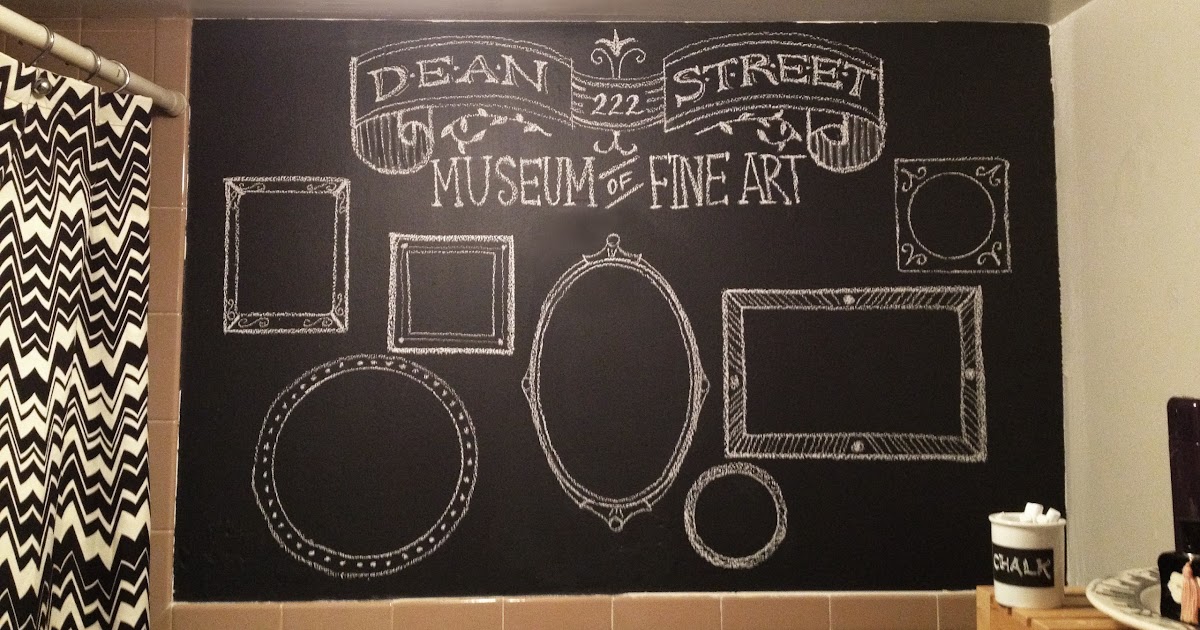 DEAN 222 STREET
MUSEUM OF FINE ART
CHALK